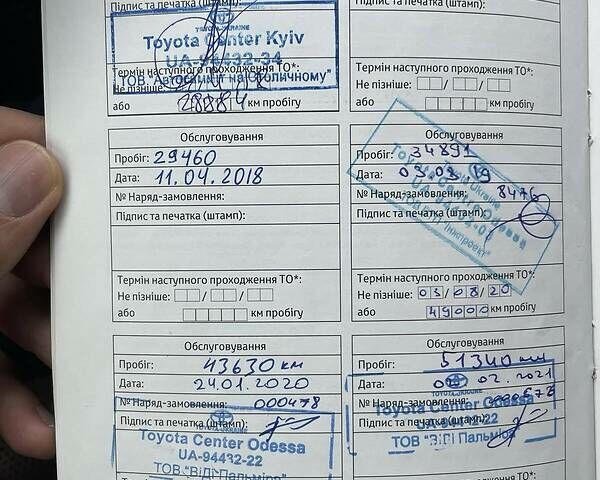 Підпис та печатка (штамп):
TOYOTA-UKRAINE
Toyota Center Kyiv
UA-94432-34
ТОВ "Автосаміт на Столичному"
Термін наступного проходження ТО*:
Не пізніше:
або км пробігу
Підпис та печатка (штамп):
Термін наступного проходження ТО*:
Не пізніше: / /
або км пробігу
Обслуговування
Пробіг: 29460
Дата: 11.04.2018
№ Наряд-замовлення:
Підпис та печатка (штамп):
Термін наступного проходження ТО*:
Не пізніше: / /
або км пробігу
Обслуговування
Пробіг: 34891
Дата: 03.03.19
№ Наряд-замовлення: 8476
Підпис та печатка (штамп):
Toyota Center Odessa
Термін наступного проходження ТО*:
Не пізніше: 03/08/20
або 49000 км пробігу
Обслуговування
Пробіг: 43630 км
Дата: 24.01.2020
№ Наряд-замовлення: 000478
Підпис та печатка (штамп):
TOYOTA-UKRAINE
Toyota Center Odessa
UA-94432-22
ТОВ "ВіДі Пальміра"
Обслуговування
Пробіг: 51340 км
Дата: 02.2021
№ Наряд-замовлення:
Підпис та печатка (штамп):
Toyota Center Odessa
UA-94432-22
ТОВ "ВіДі Пальміра"